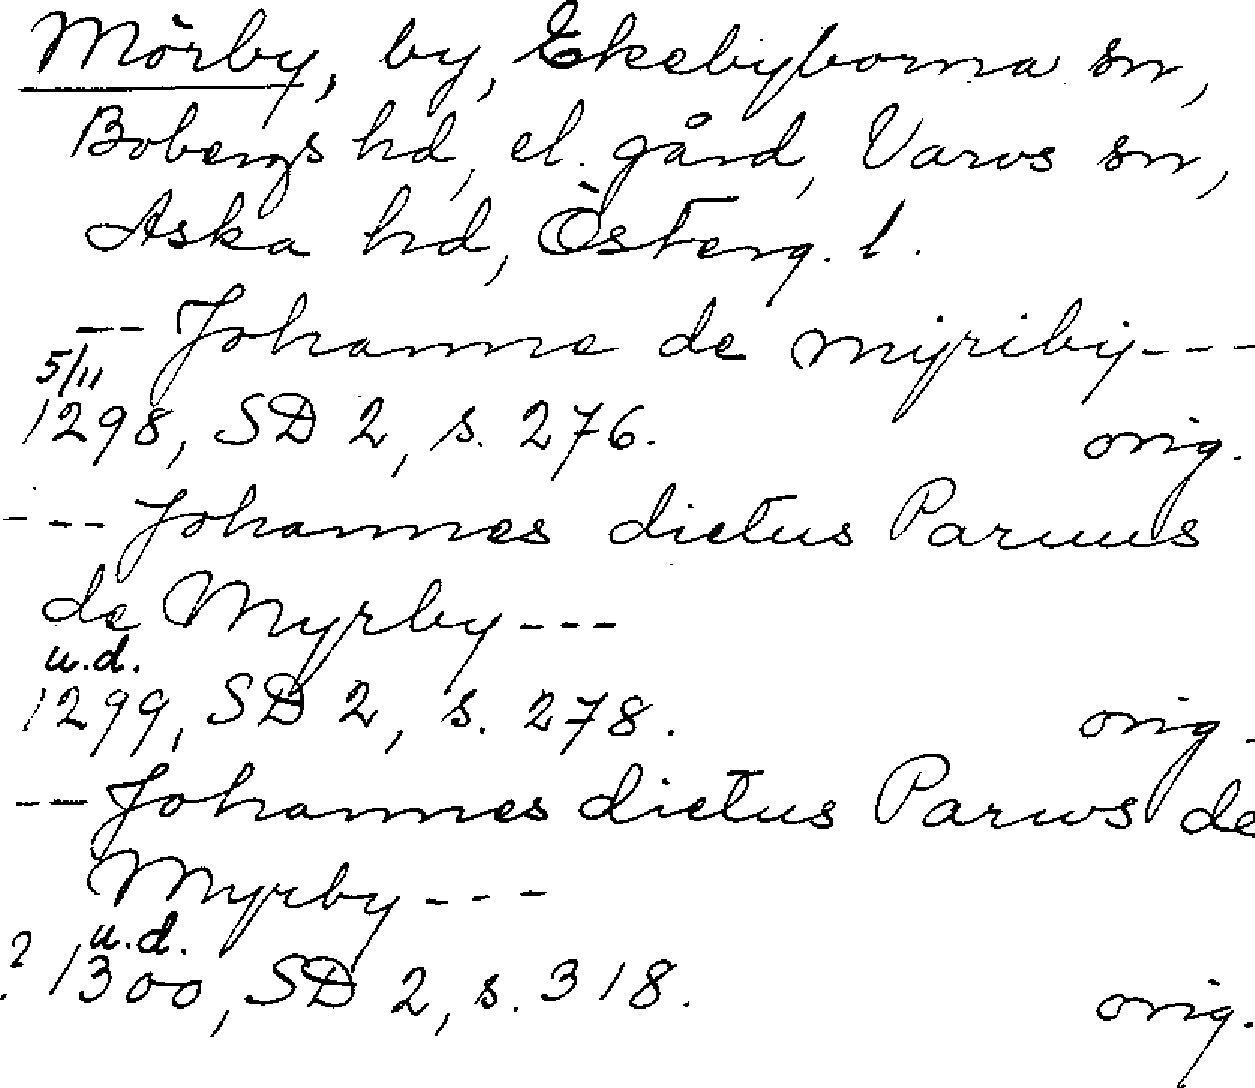 Mörby, by, Ekebyborna sn,
Bobergs hd, el. gård, Varvs sn,
Aska hd, Österg. l.
-- Johanne de myriby ---
5/11
1298, SD 2, s. 276. orig.
--- Johannes dictus Paruus
de Myrby ---
u.d.
1299, SD 2, s. 278. orig.
-- Johannes dictus Parws de
Myrby ---
u.d.
? 1300, SD 2, s. 318. orig.